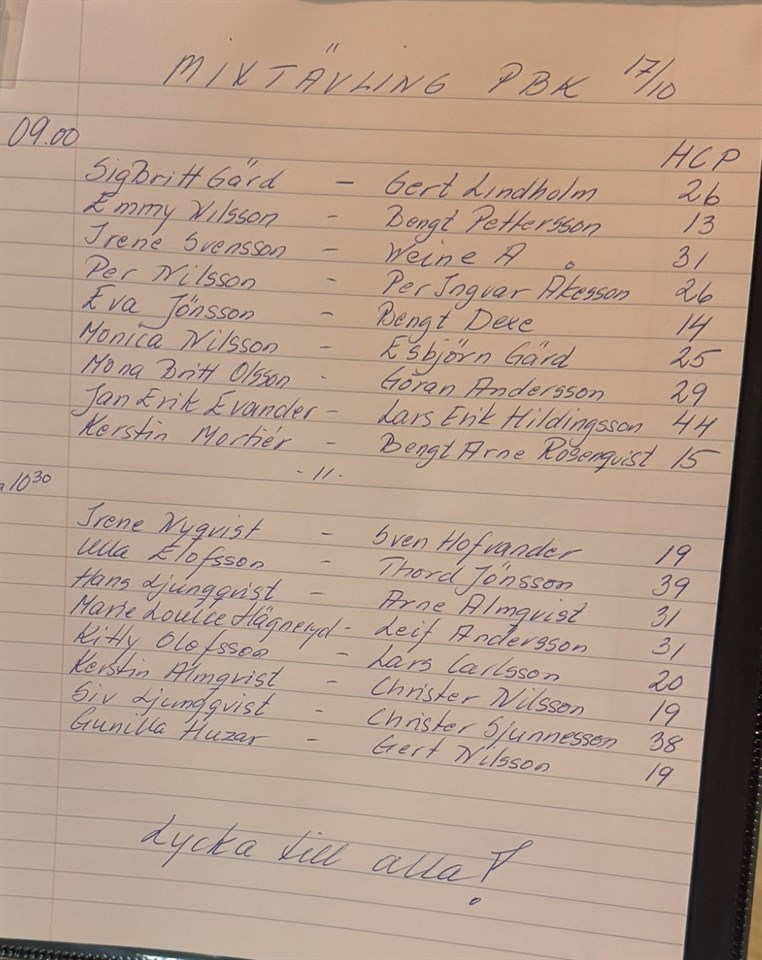 MIXTÄVLING PBK 17/10
09.00
HCP
SigBritt Gärd - Gert Lindholm 26
Emmy Nilsson - Bengt Pettersson 13
Irene Svensson - Weine A 31
Per Nilsson - Per Ingvar Åkesson 26
Eva Jönsson - Bengt Dexe 14
Monica Nilsson - Esbjörn Gärd 25
Mona Britt Olsson - Göran Andersson 29
Jan Erik Evander - Lars Erik Hildingsson 44
Kerstin Mortiér - Bengt Arne Rosenqvist 15
- 11 -
10 30
Irene Nyqvist - Sven Hofvander 19
Ulla Elofsson - Thord Jönsson 39
Hans Ljungqvist - Arne Almqvist 31
Marie Louice Hägneryd - Leif Andersson 31
Kitty Olofsson - Lars Carlsson 20
Kerstin Almqvist - Christer Nilsson 19
Siv Ljungqvist - Christer Sjunnesson 38
Gunilla Huzar - Gert Nilsson 19
Lycka till alla!